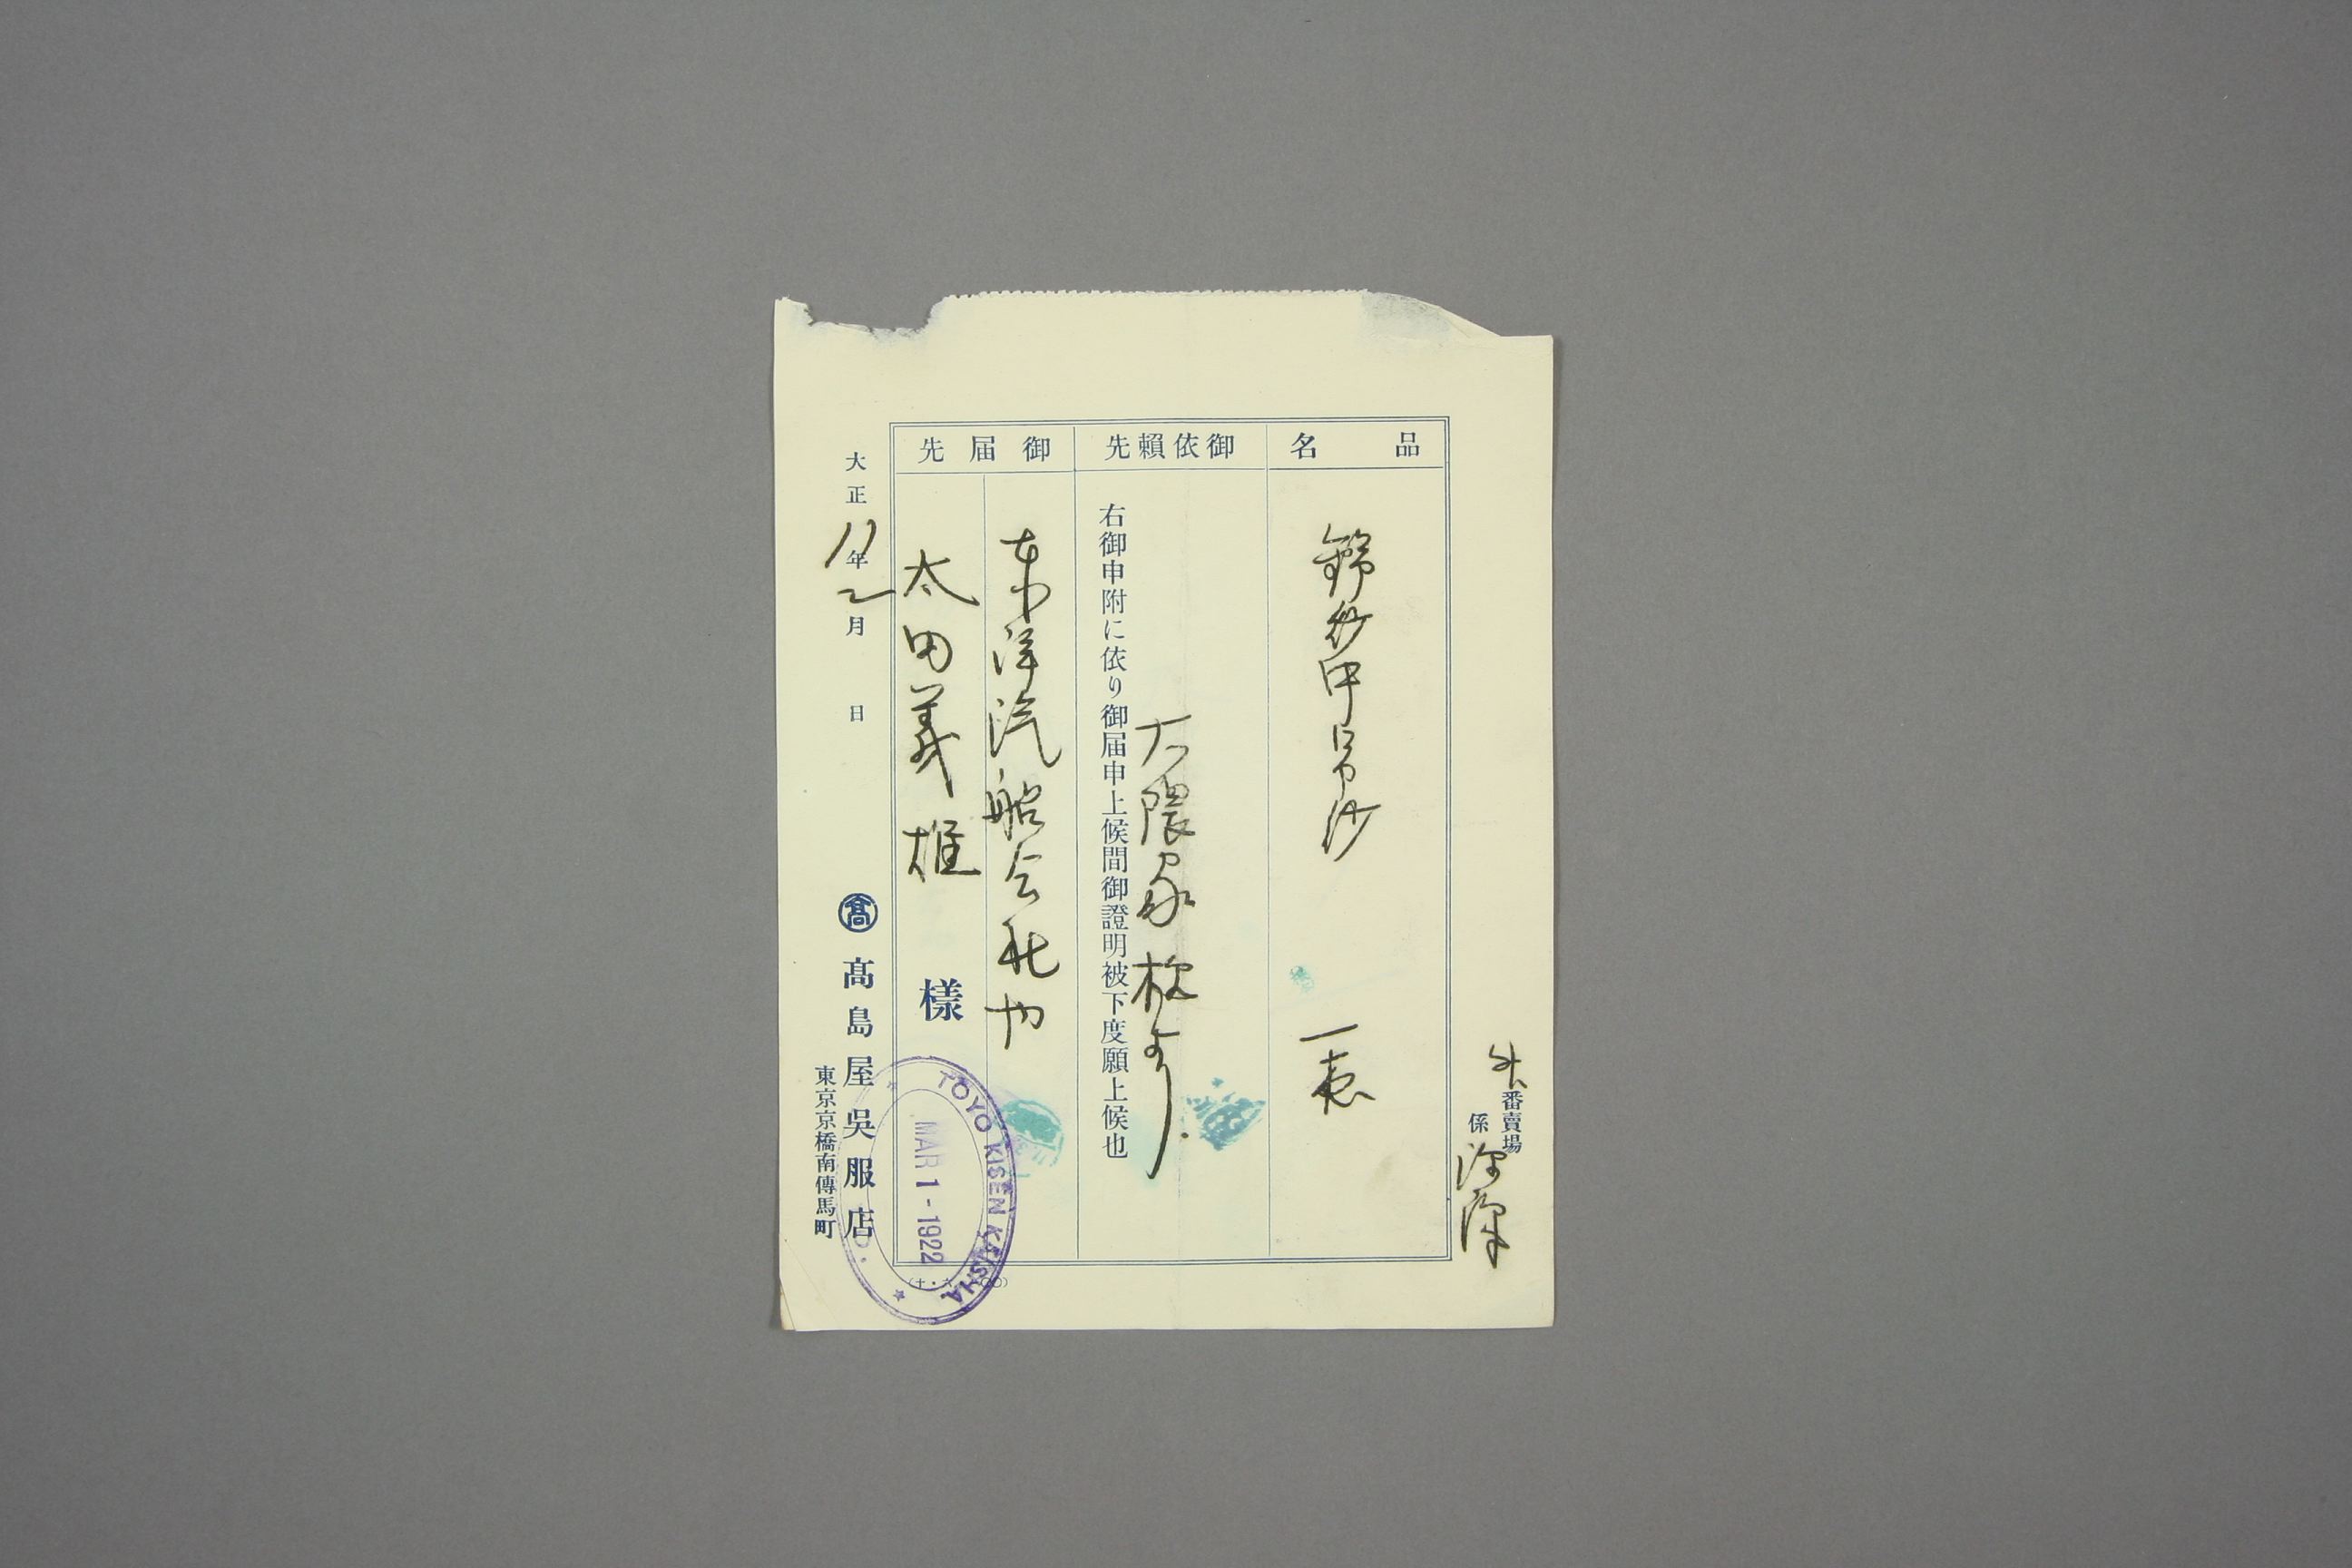 外番賣場
係
品名
錦紗中帛紗
一
御依賴先
大隈家様ゟ
右御申附に依り御届申上候間御證明被下度願上候也
御届先
東洋汽船会社内
太田義雄 様
大正11年2月 日
髙 髙島屋吳服店
東京京橋南傳馬町
TOYO KISEN KAISHA
MAR 1-1922